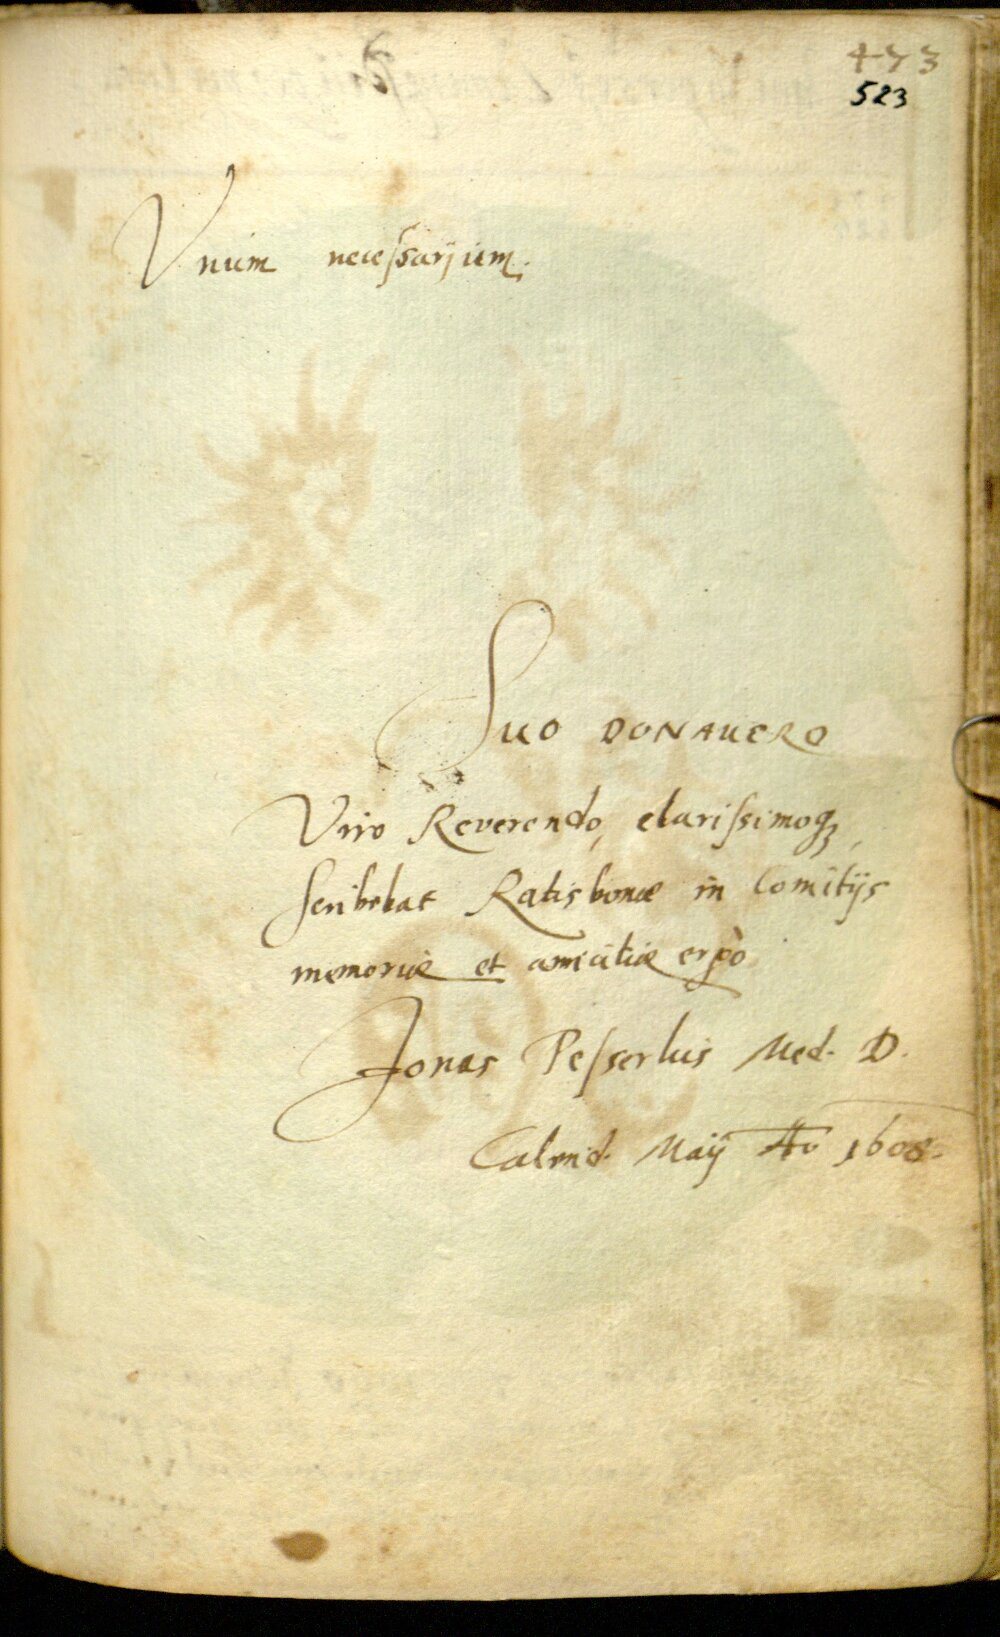 473
523
Vnum necessarium.
Suo DONAUERO
Viro Reverendo, clarissimoq;,
scribebat Ratisbonæ in Comitijs
memoriæ et amicitiæ ergò
Jonas Pesserlus Med. D.
Calend. Maij Ao 1608.